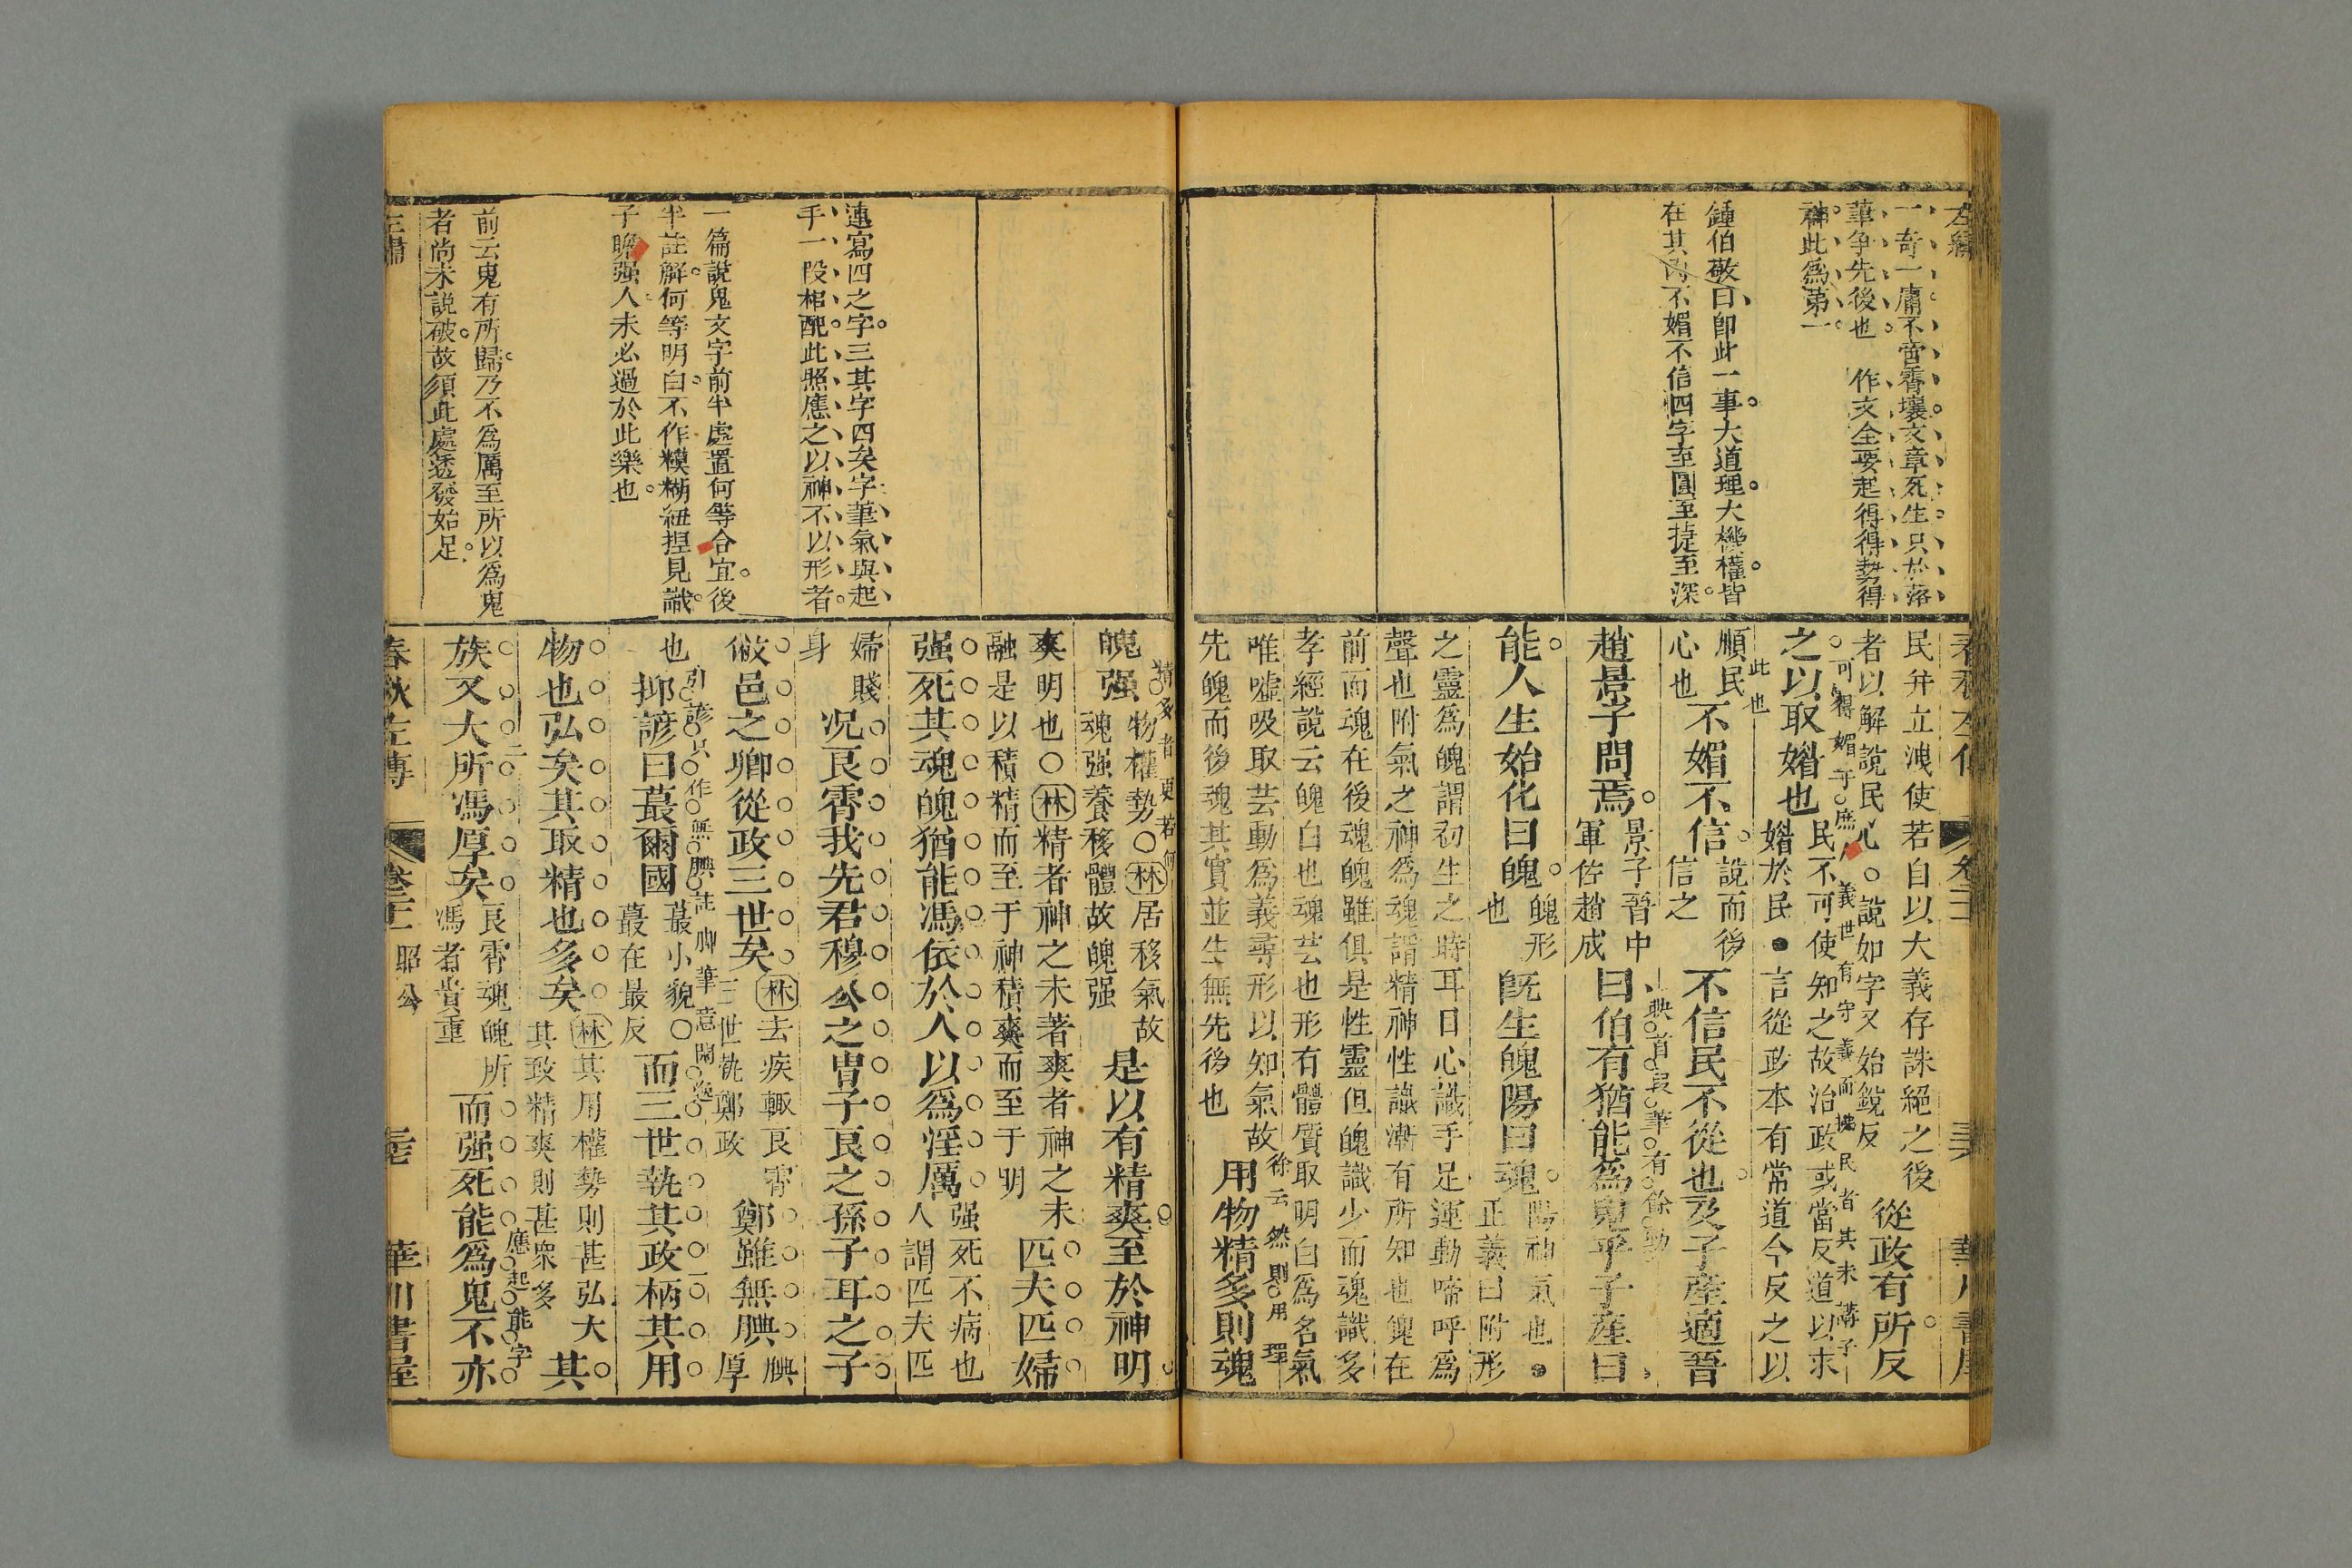 左繡
一奇一庸不啻霄壤文章死生只於落
華爭先後也　作文全要起得得勢得
神此爲第一
鍾伯敬曰卽此一事大道理大機權皆
在其內不媚不信四字至圓至捷至深
春秋左傳
卷三
華川書屋
民幷立洩使若自以大義存誅絕之後
者以解說民心○說如字又始銳反
從政有所反
可得媚于庶人義世有守義而拂民者其未講子
之以取媚也
民不可使知之故治政或當反道以求
媚於民●言從政本有常道今反之以
此也
順民
心也
不媚不信
說而後
信之
不信民不從也及子產適晉
趙景子問焉
景子晉中
軍佐趙成
曰伯有猶能爲鬼乎子產曰
能人生始化曰魄
魄形
也
旣生魄陽曰魂
陽神氣也●
正義曰附形
之靈爲魄謂初生之時耳目心識手足運動啼呼爲
聲也附氣之神爲魂謂精神性識漸有所知也魄在
前而魂在後魂魄雖俱是性靈但魄識少而魂識多
孝經說云魄白也魂芸也形有體質取明白爲名氣
唯噓吸取芸動爲義尋形以知氣故
先魄而後魂其實並生無先後也
徐云然則用
用物精多則魂
連寫四之字三其字四矣字筆氣與起
手一段相配此照應之以神不以形者
一篇說鬼文字前半處置何等合宜後
半註解何等明白不作糢糊紐捏見識
子瞻强人未必過於此樂也
前云鬼有所歸乃不爲厲至所以爲鬼
者尚未說破故須此處透發始足
魄强
精多者更若何
物權勢○林居移氣故
魂强養移體故魄强
是以有精爽至於神明
爽明也○林精者神之未著爽者神之未
融是以積精而至于神積爽而至于明
匹夫匹婦
强死其魂魄猶能馮依於人以爲淫厲
强死不病也
人謂匹夫匹
婦賤
身
况良霄我先君穆公之胄子良之孫子耳之子
敝邑之卿從政三世矣
林去疾輒良霄
三世執鄭政
鄭雖無腆
腆
厚
也
抑諺曰蕞爾國
蕞小貌○
蕞在最反
而三世執其政柄其用
物也弘矣其取精也多矣
林其用權勢則甚弘大
其致精爽則甚衆多
其
族又大所馮厚矣
良霄魂魄所
馮者貴重
而强死能爲鬼不亦
應起能字
左繡
春秋左傳
卷三
昭公
華川書屋